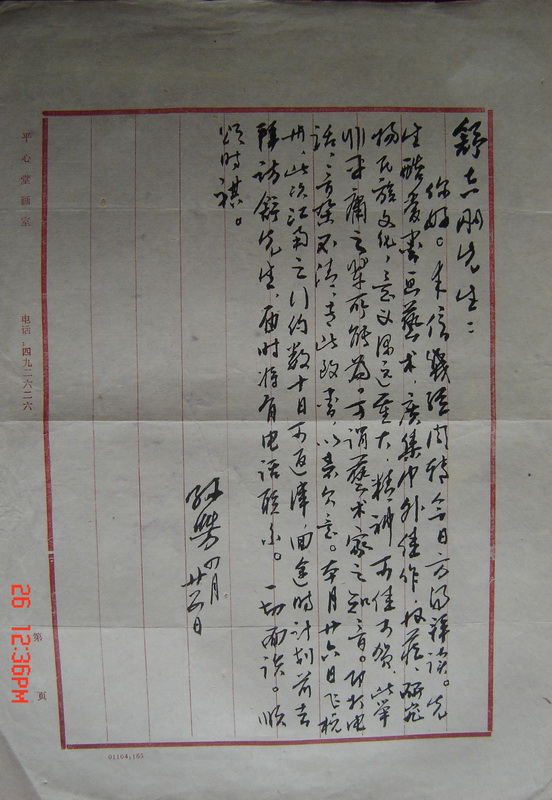 舒志刚先生：
你好。来信幾经周转今日方得拜读。先
生酷爱書画藝术，廣集中外佳作，收藏、研究
揚民族文化，意义深远重大，精神可佳可贺，此举
非平庸之辈所能为。可谓藝术家之知音。打电
话，音杂不清，专此致書，以表欠意。本月廿六日飞杭
州，此次江南之行约数十日可返津，回途时计划前去
拜访舒先生，届时将有电话联系。一切面谈。顺
颂时祺。
孙 四月
廿五日
平心堂画室
电话:四九二六二六
第 页
91104,165
26 12:36PM